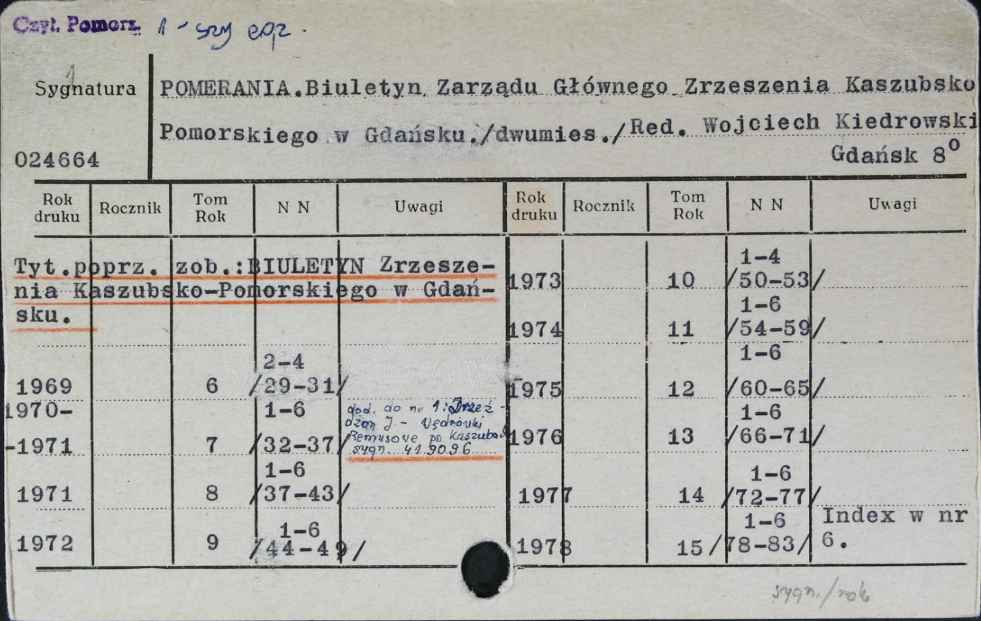 Czyt. Pomorz. 1-szy egz.
Sygnatura
024664
POMERANIA.Biuletyn Zarządu Głównego Zrzeszenia Kaszubsko
Pomorskiego w Gdańsku./dwumies./Red. Wojciech Kiedrowski
Gdańsk 8°
Rok druku Rocznik Tom Rok N N Uwagi Rok druku Rocznik Tom Rok N N Uwagi
Tyt.poprz. zob.:BIULETYN Zrzesze-
nia Kaszubsko-Pomorskiego w Gdań-
sku.
1969 6 2-4 /29-31/
1970-
-1971 7 1-6 /32-37/
dod. do nr 1: Drzeż-
dżon J - Wędrówki
Remusowe po Kaszubach
sygn. 419096
1971 8 1-6 /37-43/
1972 9 1-6 /44-49/
1973 10 1-4 /50-53/
1974 11 1-6 /54-59/
1975 12 1-6 /60-65/
1976 13 1-6 /66-71/
1977 14 1-6 /72-77/
1978 15 1-6 /78-83/ Index w nr
6.
sygn./rok